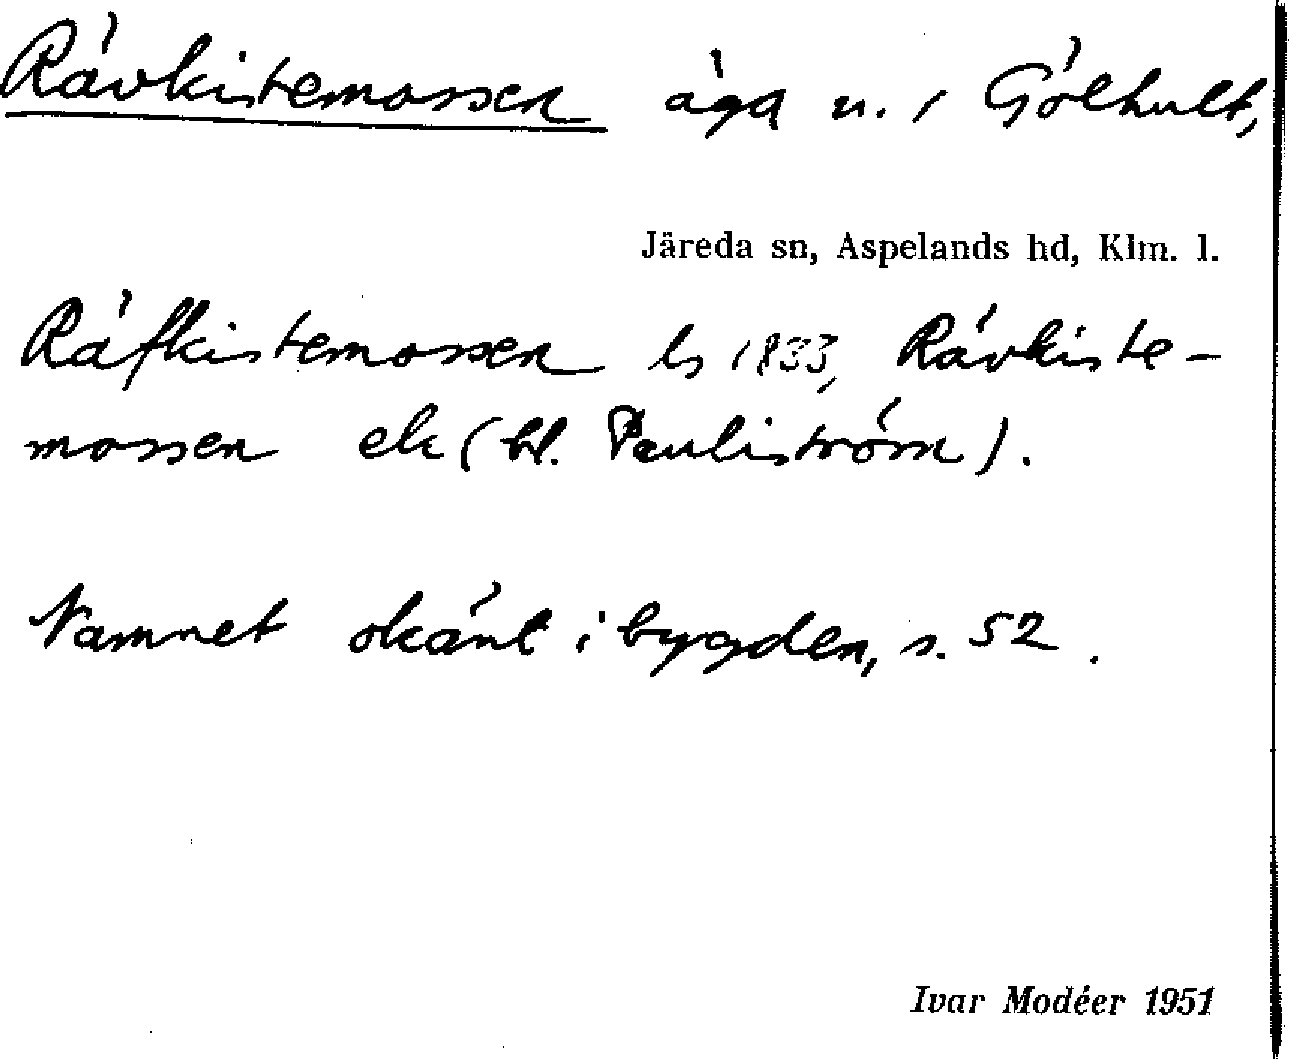 Rävkistemossen äga u. i Gölhult,
Järeda sn, Aspelands hd, Klm. l.
Räfkistemossen ls 1833, Rävkiste-
mossen ek (bl. Pauliström).
Namnet okänt i bygden, s. 52.
Ivar Modéer 1951